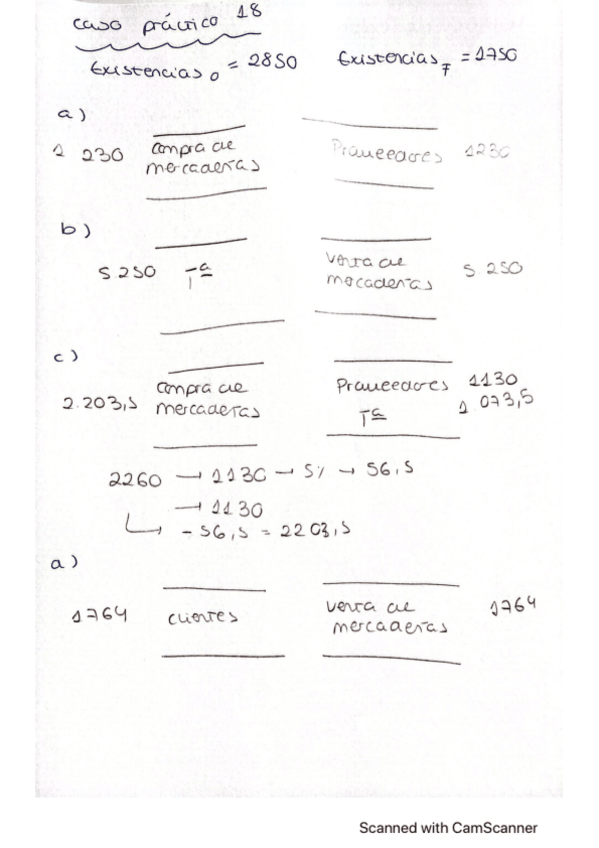 caso práctico 18
Existencias o = 2850 Existencias F = 1750
a)
1 230 compra de mercaderías Proveedores 1230
b)
5.250 Tª venta de mercaderías 5.250
c)
2.203,5 compra de mercaderías Proveedores 1130
Tª 1 073,5
2260 → 1130 → 5% → 56,5
→ 1130
→ - 56,5 = 2203,5
a)
1764 clientes venta de mercaderías 1764
Scanned with CamScanner